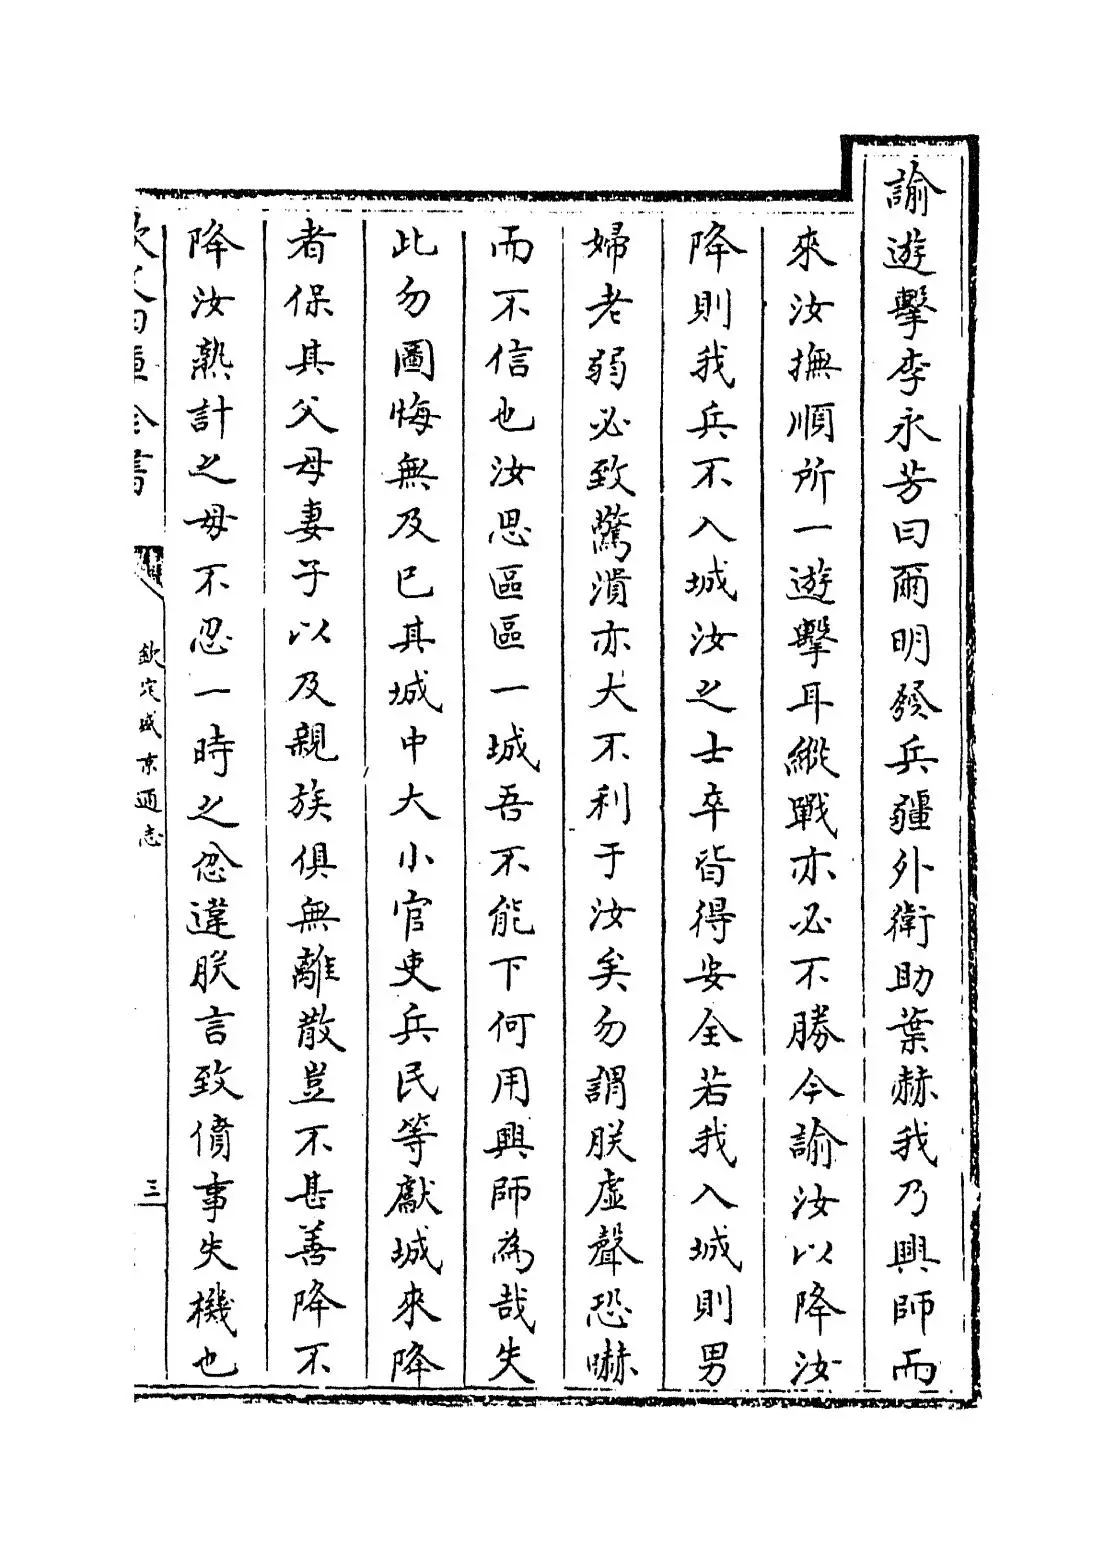 諭遊擊李永芳曰爾明發兵疆外衛助葉赫我乃興師而
來汝撫順所一遊擊耳縱戰亦必不勝今諭汝以降汝
降則我兵不入城汝之士卒皆得安全若我入城則男
婦老弱必致驚潰亦大不利于汝矣勿謂朕虛聲恐嚇
而不信也汝思區區一城吾不能下何用興師為哉失
此勿圖悔無及已其城中大小官吏兵民等獻城來降
者保其父母妻子以及親族俱無離散豈不甚善降不
降汝熟計之毋不忍一時之忿違朕言致僨事失機也
欽定四庫全書
欽定盛京通志
三